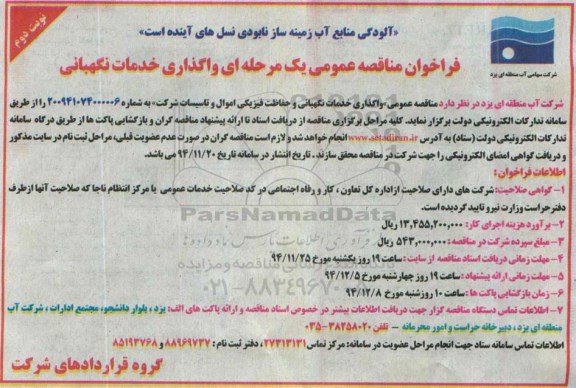 نوبت دوم
«آلودگی منابع آب زمینه ساز نابودی نسل های آینده است»
شرکت سهامی آب منطقه ای یزد
فراخوان مناقصه عمومی یک مرحله ای واگذاری خدمات نگهبانی
شرکت آب منطقه ای یزد در نظر دارد مناقصه عمومی «واگذاری خدمات نگهبانی و حفاظت فیزیکی اموال و تاسیسات شرکت» به شماره ۲۰۰۹۴۱۰۷۴۰۰۰۰۰۶ را از طریق
سامانه تدارکات الکترونیکی دولت برگزار نماید. کلیه مراحل برگزاری مناقصه از دریافت اسناد تا ارائه پیشنهاد مناقصه گران و بازگشایی پاکت ها از طریق درگاه سامانه
تدارکات الکترونیکی دولت (ستاد) به آدرس www.setadiran.ir انجام خواهد شد و لازم است مناقصه گران در صورت عدم عضویت قبلی، مراحل ثبت نام در سایت مذکور
و دریافت گواهی امضای الکترونیکی را جهت شرکت در مناقصه محقق سازند. تاریخ انتشار در سامانه تاریخ ۹۴/۱۱/۲۰ می باشد.
اطلاعات فراخوان:
۱- گواهی صلاحیت: شرکت های دارای صلاحیت از اداره کل تعاون، کار و رفاه اجتماعی در کد صلاحیت خدمات عمومی یا مرکز انتظام ناجا که صلاحیت آنها از طرف
دفتر حراست وزارت نیرو تایید گردیده است.
۲- برآورد هزینه اجرای کار: ۱۳,۴۵۵,۲۰۰,۰۰۰ ریال
۳- مبلغ سپرده شرکت در مناقصه: ۵۴۳,۰۰۰,۰۰۰ ریال
۴- مهلت زمانی دریافت اسناد مناقصه از سایت: ساعت ۱۹ روز یکشنبه مورخ ۹۴/۱۱/۲۵
۵- مهلت زمانی ارائه پیشنهاد: ساعت ۱۹ روز چهارشنبه مورخ ۹۴/۱۲/۵
۶- زمان بازگشایی پاکت ها: ساعت ۱۰ روز شنبه مورخ ۹۴/۱۲/۸
۷- اطلاعات تماس دستگاه مناقصه گزار جهت دریافت اطلاعات بیشتر در خصوص اسناد مناقصه و ارائه پاکت های الف: یزد، بلوار دانشجو، مجتمع ادارات، شرکت آب
منطقه ای یزد، دبیرخانه حراست و امور محرمانه - تلفن ۳۸۲۵۸۰۲۰-۰۳۵
اطلاعات تماس سامانه ستاد جهت انجام مراحل عضویت در سامانه: مرکز تماس ۲۷۳۱۳۱۳۱، دفتر ثبت نام: ۸۸۹۶۹۷۳۷ و ۸۵۱۹۳۷۶۸
گروه قراردادهای شرکت
ParsNamadData
۰۲۱-۸۸۳۴۹۶۷۰